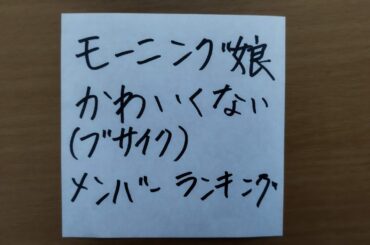 モーニング娘
かわいくない
(ブサイク)
メンバー ランキング